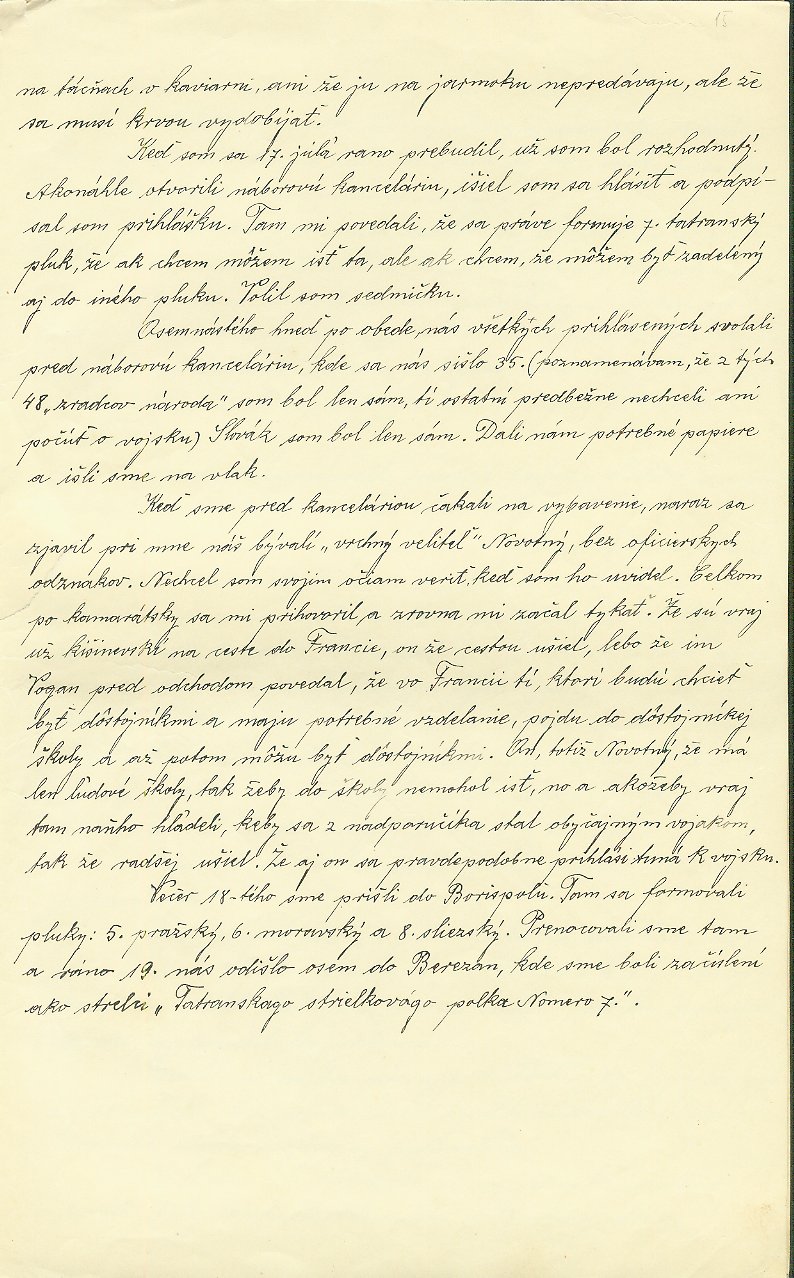 15
na tácňach v kaviarni, ani že ju na jarmoku nepredávaju, ale že
sa musí krvou vydobíjať.
Keď som sa 17. júla rano prebudil, už som bol rozhodnutý.
Akonáhle otvorili náborovú kanceláriu, išiel som sa hlásiť a podpí-
sal som prihlášku. Tam mi povedali, že sa práve formuje 7. tatranský
pluk, že ak chcem môžem isť ta, ale ak chcem, že môžem byť zadelený
aj do iného pluku. Volil som sedmičku.
Osemnástého hneď po obede, nás všetkých prihlásených svolali
pred náborovú kanceláriu, kde sa nás sišlo 35. (poznamenávam, že z tých
48 „zradcov národa" som bol len sám, tí ostatní predbežne nechceli ani
počúť o vojsku) Slovák som bol len sám. Dali nám potrebné papiere
a išli sme na vlak.
Keď sme pred kanceláriou čakali na vybavenie, naraz sa
zjavil pri mne náš bývalí „vrchný veliteľ" Novotný, bez oficierskych
odznakov. Nechcel som svojim očiam veriť, keď som ho uvidel. Celkom
po kamarátsky sa mi prihovoril, a zrovna mi začal tykať. Že sú vraj
už kišinevskí na ceste do Francie, on že cestou ušiel, lebo že im
Vogan pred odchodom povedal, že vo Francii tí, ktorí budú chcieť
byť dôstojníkmi a maju potrebné vzdelanie, pojdu do dôstojníckej
školy a až potom môžu byť dôstojníkmi. On, totiž Novotný, že má
len ľudové školy, tak žeby do školy nemohol isť, no a akožeby vraj
tam naňho hľadeli, keby sa z nadporučíka stal obyčajným vojakom,
tak že radšej ušiel. Že aj on sa pravdepodobne prihlási tuná k vojsku.
Večer 18-tého sme prišli do Borispolu. Tam sa formovali
pluky: 5. pražský, 6. moravský a 8. sliezský. Prenocovali sme tam
a ráno 19. nás odišlo osem do Berezan, kde sme boli začíslení
ako strelci „Tatranskago strielkovágo polka Nomero 7.".